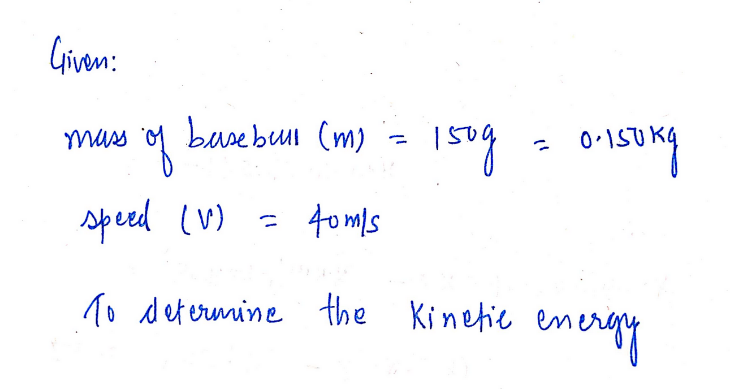 Given:
mass of baseball (m) = 150g = 0.150 Kg
speed (v) = 40 m/s
To determine the Kinetic energy